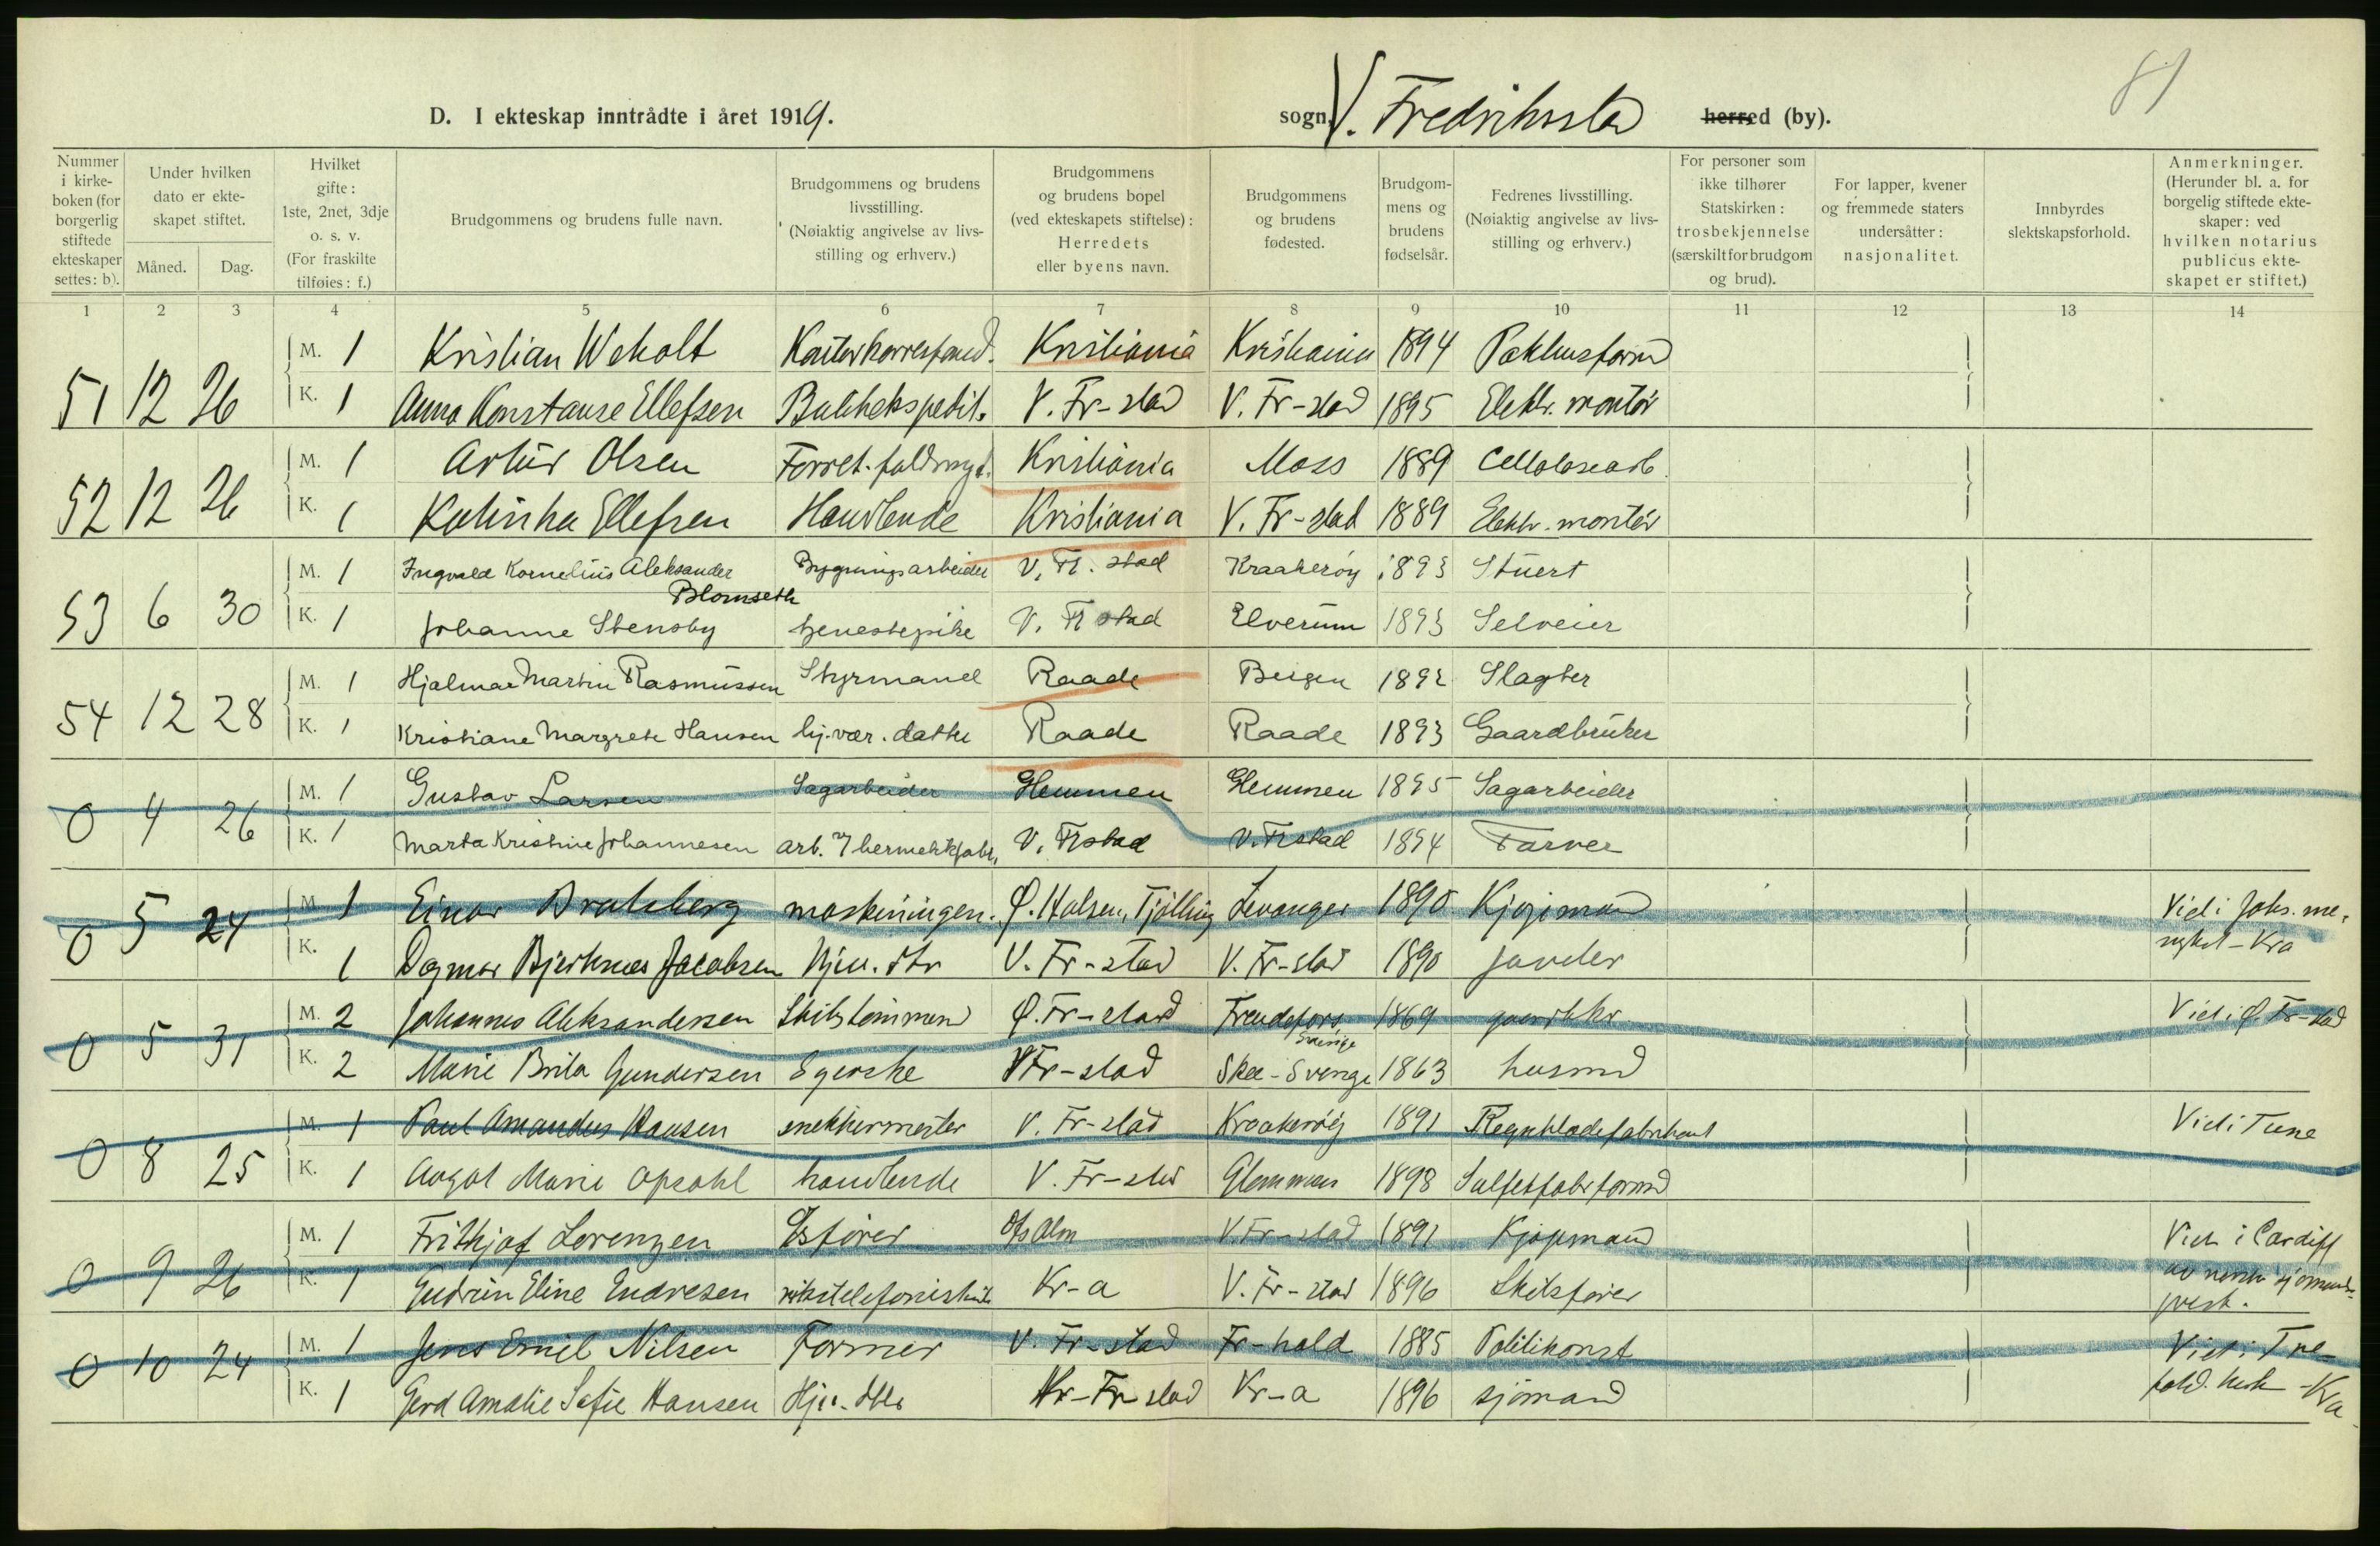 81
D. I ekteskap inntrådte i året 1919. sogn, V. Fredrikstad herred (by).
Nummer i kirkeboken (for borgerlig stiftede ekteskaper settes: b).
Under hvilken dato er ekteskapet stiftet.
Måned. Dag.
Hvilket gifte: 1ste, 2net, 3dje o. s. v. (For fraskilte tilføies: f.)
Brudgommens og brudens fulle navn.
Brudgommens og brudens livsstilling. (Nøiaktig angivelse av livsstilling og erhverv.)
Brudgommens og brudens bopel (ved ekteskapets stiftelse): Herredets eller byens navn.
Brudgommens og brudens fødested.
Brudgommens og brudens fødselsår.
Fedrenes livsstilling. (Nøiaktig angivelse av livsstilling og erhverv.)
For personer som ikke tilhører Statskirken: trosbekjennelse (særskilt for brudgom og brud).
For lapper, kvener og fremmede staters undersåtter: nasjonalitet.
Innbyrdes slektskapsforhold.
Anmerkninger. (Herunder bl. a. for borgelig stiftede ekteskaper: ved hvilken notarius publicus ekteskapet er stiftet.)
1 2 3 4 5 6 7 8 9 10 11 12 13 14
M. 1 Kristian Weholt Kontorkorrespond. Kristiania Kristiania 1894 Pakhusform
51 12 26 K. 1 Anna Konstanse Ellefsen Butikekspedit. V. Fr-stad V. Fr-stad 1895 Elektr. montör
M. 1 Artur Olsen Forret.fuldmegt. Kristiania Moss 1889 Cellulosearb.
52 12 26 K. 1 Katinka Ellefsen Handlende Kristiania V. Fr-stad 1889 Elektr. montör
M. 1 Ingvald Kornelius Aleksander Blomseth Bygningsarbeider V. Fr. stad Kraakerøy 1893 Stuert
53 6 30 K. 1 Johanne Stensby tjenestepike V. Fr stad Elverum 1893 Selveier
M. 1 Hjalmar Martin Rasmussen Styrmand Raade Bergen 1892 Slagter
54 12 28 K. 1 Kristiane Margrete Hansen hj.vær. datter Raade Raade 1893 Gaardbruker
M. 1 Gustav Larsen Sagarbeider Glemmen Glemmen 1895 Sagarbeider
0 4 26 K. 1 Marta Kristine Johannesen arb. i hermetikfabr. V. Frstad V. Frstad 1894 Farver
M. 1 Einar Bratsberg maskiningen. Ø. Halsen, Tjølling Levanger 1890 Kjøpmand Viet i Jaks. me-
0 5 24 K. 1 Dagmar Bjerknes Jacobsen Hjem. dtr V. Fr-stad V. Fr-stad 1890 Handler nighet - Kra
M. 2 Johannes Aleksandersen Skibstømmerm Ø. Fr-stad Frendefors Sverige 1869 gaardbkr Viet i Ø. Fr-stad
0 5 31 K. 2 Marie Brita Gundersen Egerske V Fr-stad Skee - Sverige 1863 husmd
M. 1 Paul Amandus Hansen snekkermester V. Fr-stad Kraakerøy 1891 Regnkladefabrikant Viet i Tune
0 8 25 K. 1 Aagot Marie Opsahl handlende V. Fr-stad Glemmen 1898 Sulfitfabr formd
M. 1 Frithjof Lorenzen V. Fr-stad 1891 Kjøpmand Viet i Cardiff
0 9 26 K. 1 Gudrun Eline Endresen rikstelefonistinde Kr-a V. Fr-stad 1896 Skibsfører av norsk sjømands-
prest.
M. 1 Jens Emil Nilsen Former V. Fr-stad Fr-hald 1885 Politikonst Viet i Tre-
0 10 24 K. 1 Gerd Amalie Sofie Hansen Hje. dtr Fr stad Kr-a 1896 sjømand fold. kirk - Kra